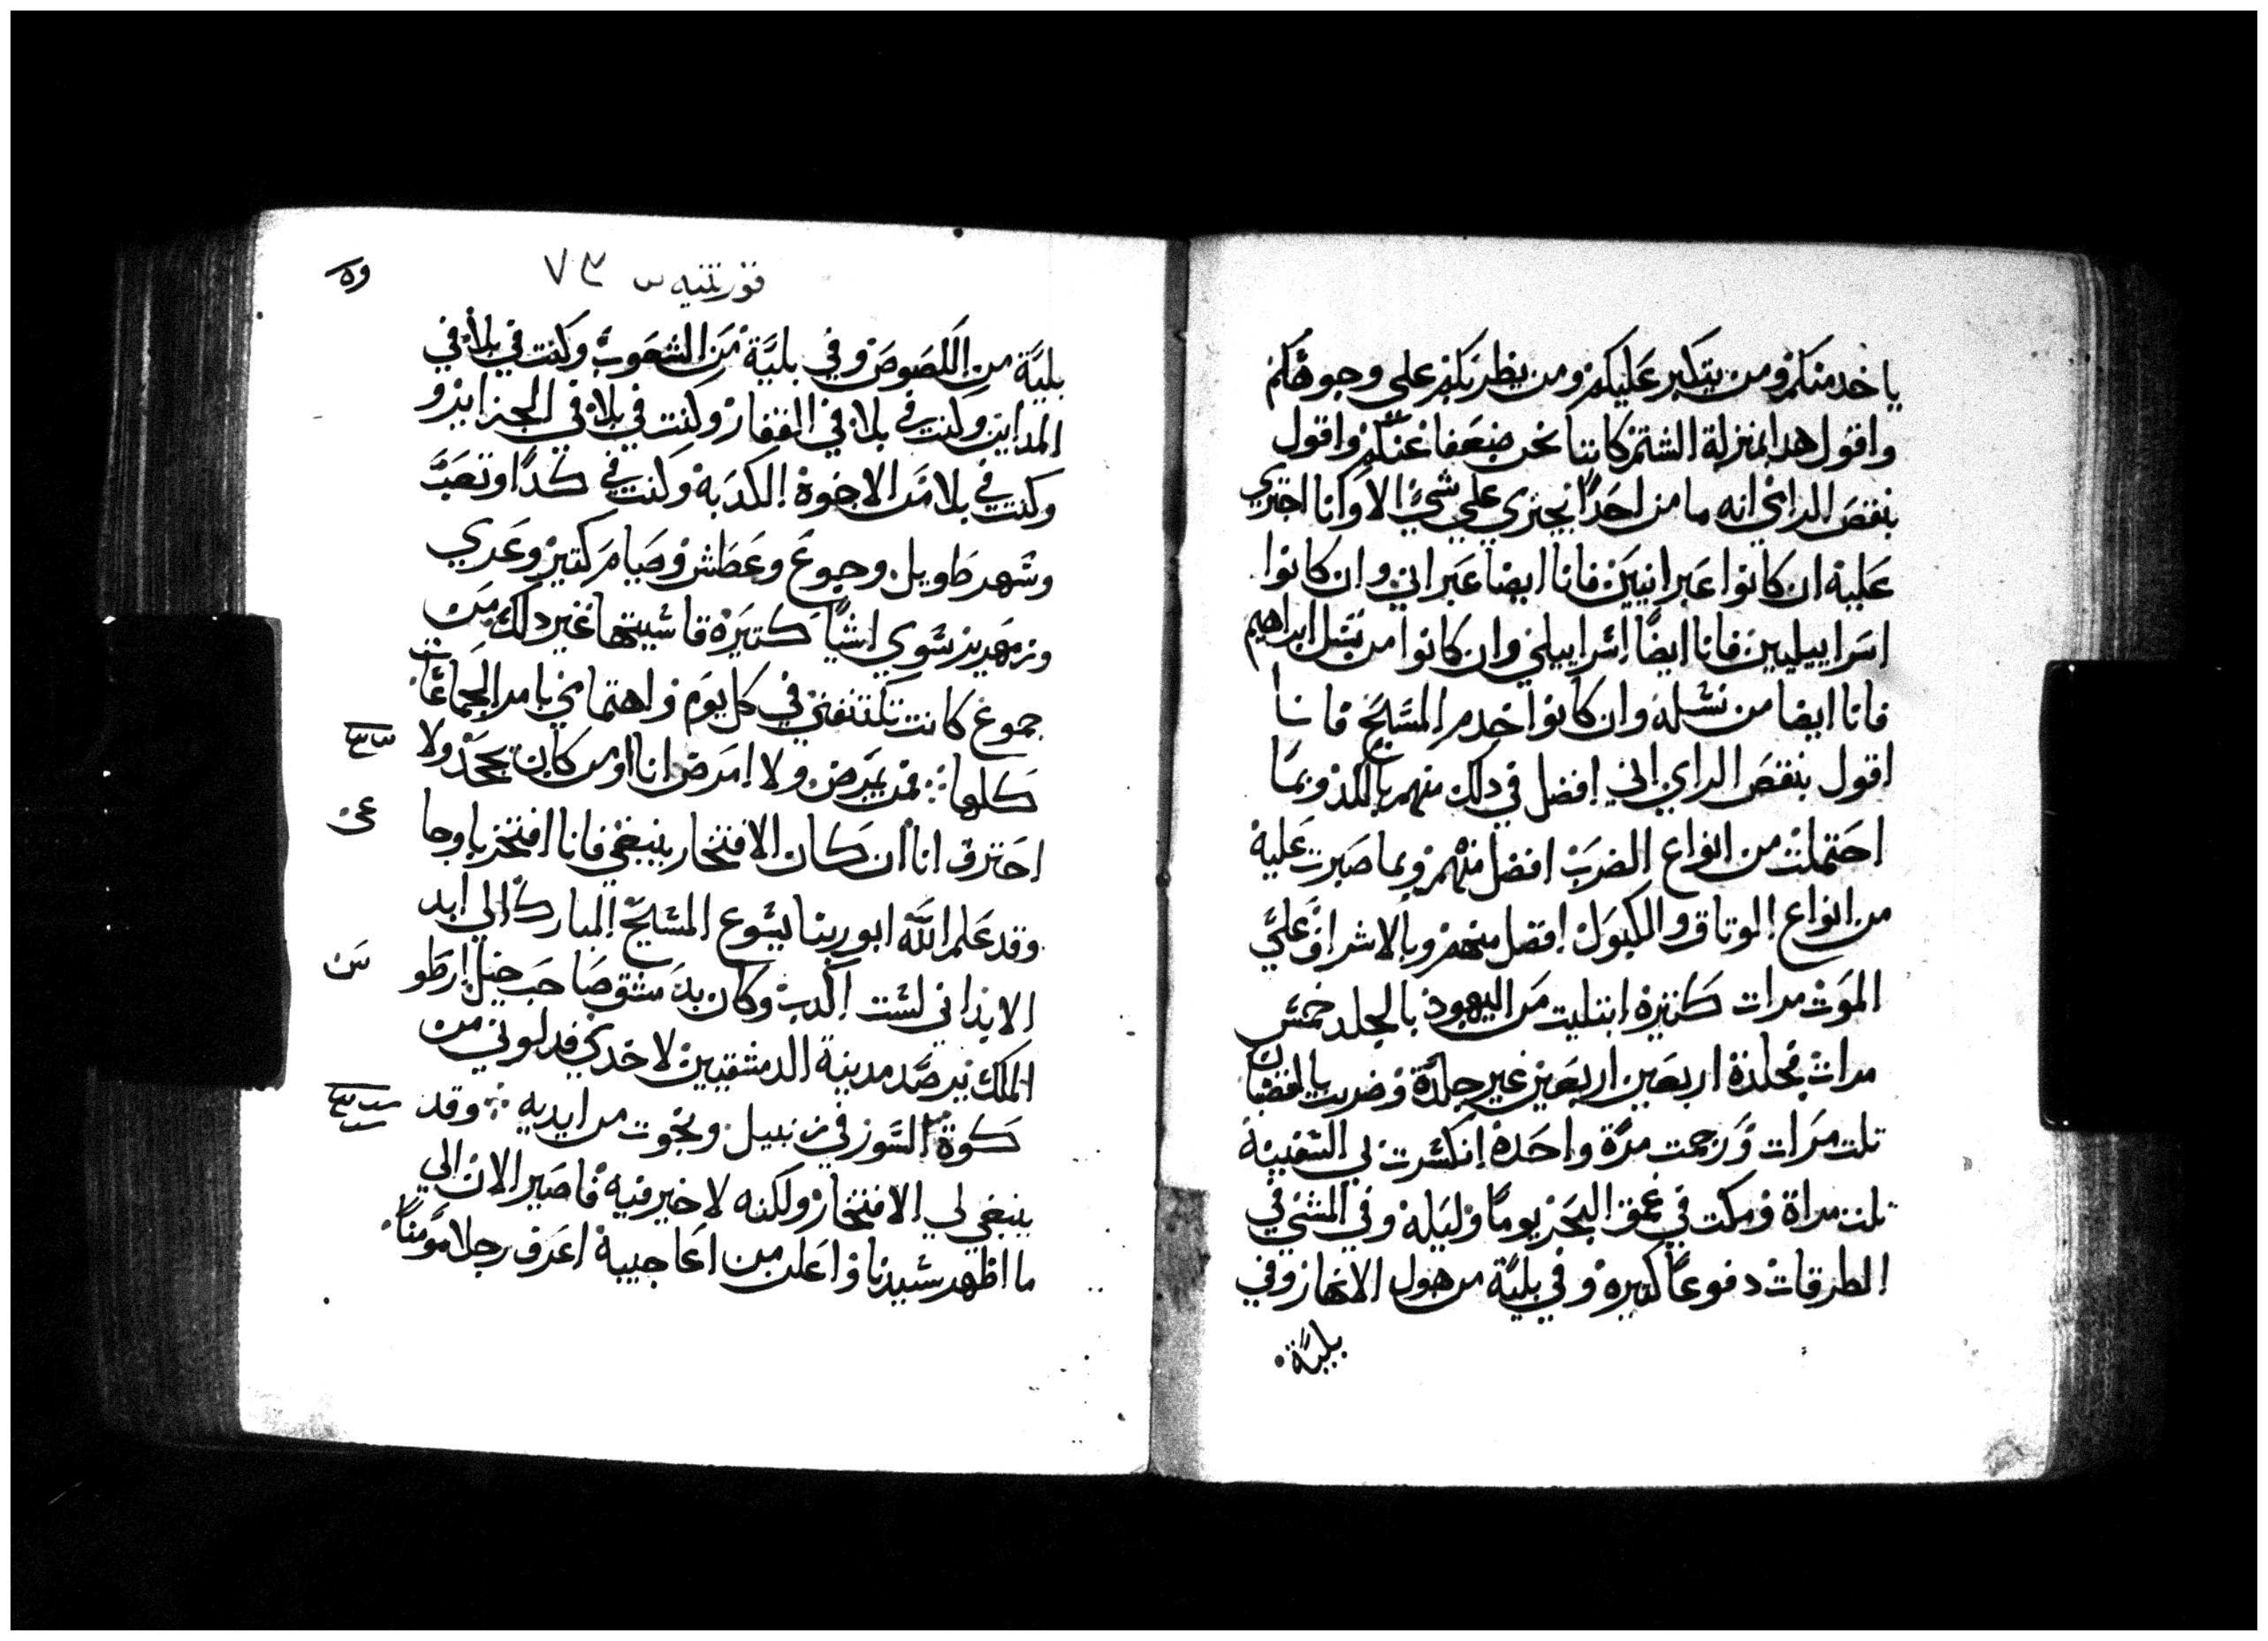 ياخد منكم ومن يتكبر عليكم ومن يظربكم على وجوهكم
واقول هدا بمنزلة الشتم كاننا نحن ضعفا عندكم واقول
بنقص الراي انه ما من احدًا يجتري على شيً الا وانا اجتري
عليه ان كانوا عبرانيين فانا ايضا عبراني وان كانوا
اسراييليين فانا ايضًا اسراييلي وان كانوا من نسل ابراهيم
فانا ايضا من نسله وان كانوا خدم المسيح فانا
اقول بنقص الراي اني افضل في دلك منهم بالكد وبما
احتملت من انواع الضرب افضل منهم وبما صبرت عليه
من انواع الوتاق والكبول افضل منهم وبالاشراف علي
الموت مرات كتيرة ابتليت من اليهود بالجلد خمس
مرات فجلدة اربعين اربعين غير جلدة وضربت بالقضبان
تلت مرات ورجمت مرة واحدة انكسرت بي السفينة
تلت مراة ومكت في عمق البحر يومًا وليله وفي المشي في
الطرقات دفوعًا كتيره وفي بلية من هول الانهار وفي
بلية
قورنتيه س ٧٣
بلية من اللصوص وفي بلية من الشعوب وكنت في بلا في
المداين وكنت في بلا في القفار وكنت في بلا في الجزاير و
وكنت في بلا من الاخوة الكدبه وكنت في كدًا وتعب
وشهر طويل وجوع وعطش وصيام كتير وعري
وزمهرير سوي اشيا كتيرة قاسيتها غير دلك من
جموع كانت تكتنفني في كل يوم واهتمامي بامر الجماعات
كلها فمن يمرض ولا امرض انا او من كان يجحد ولا
احترق انا ان كان الافتخار ينبغي فانا افتخر باوجا
وقد علم الله ابو ربنا يسوع المسيح المبارك الي ابد
الابد اني لست اكدب وكان بدمشق صاحب خيل ارطو
الملك يرصد مدينة الدمشقيين لاخدي فدلوني من
كوة السور في زنبيل ونجوت من ايديه وقد
ينبغي لي الافتخار ولكنه لا خير فيه فاصير الان الي
ما اظهر سيدنا واعلن من اعاجيبه اعرف رجلا مومنًا